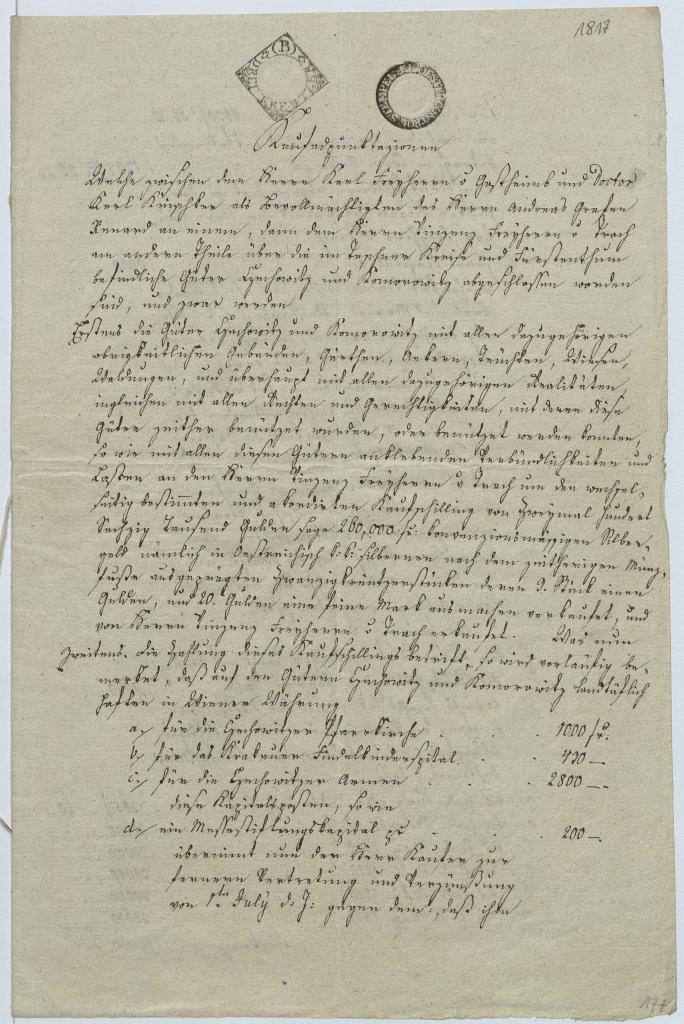 1817
Kaufsadpunktazionen
Welche zwischen dem Herrn Karl Freyherrn v Gastheimb und Doctor
Karl als bevollmächtigten des Herrn Andreas Grafen
Renard an einem, dann dem Herrn Vinzenz Freyherrn v Trach
am andern Theile über die im Teschner Kreise und Fürstenthum
befindliche Güter und Komorowitz abgeschlossen worden
sind, und zwar werden
Erstens die Güter und Komorowitz mit allen dazugehörigen
obrigkeitlichen Gebäuden, Gärthen, Aekern, Teuchten, Wiesen,
Waldungen, und überhaupt mit allen dazugehörigen Realitäten,
ingleichen mit allen Rechten und Gerechtigkeiten, mit denen diese
Güter zeither benützet wurden, oder benützet werden konten,
so wie mit allen diesen Gütern anklebenden Verbündlichkeiten und
Lasten an den Herrn Vinzenz Freyherrn v Trach um den wechsel-
seitig bestimmten und akordirten Kaufschilling von Zweymal hundert
Sechzig Tausend Gulden sage 260,000 fr: konvenzionsmässigen Silber-
geld nämlich in Oestreichisch k: k: silbernen nach dem zeitherigen Münz-
fuße ausgeprägten Zwanzigkreutzerstücken deren 3. Stück einen
Gulden, und 20. Gulden eine feine Mark ausmachen verkaufet, und
von Herrn Vinzenz Freyherrn v Trach erkaufet. Was nun
Zweitens. die Zahlung dieses Kaufschillings betrift, so wird vorläufig be-
merket, daß auf den Gütern und Komorowitz landtäflich
haften in Wiener Währung
a./ für die Pfarrkirche . . . 1000 fr:
b./ für das Krakauer Findelkinderspital . . 430 —
c./ für die Armen . . . 2800 —
diese Kapitalsposten, so wie
d./ ein Messestiftungskapital pr . . . 200 —
übernimt nun der Herr Kaufer zur
fernern Vertretung und Verzünsung
von 1ten July d: J: gegen dem, daß ihm
177